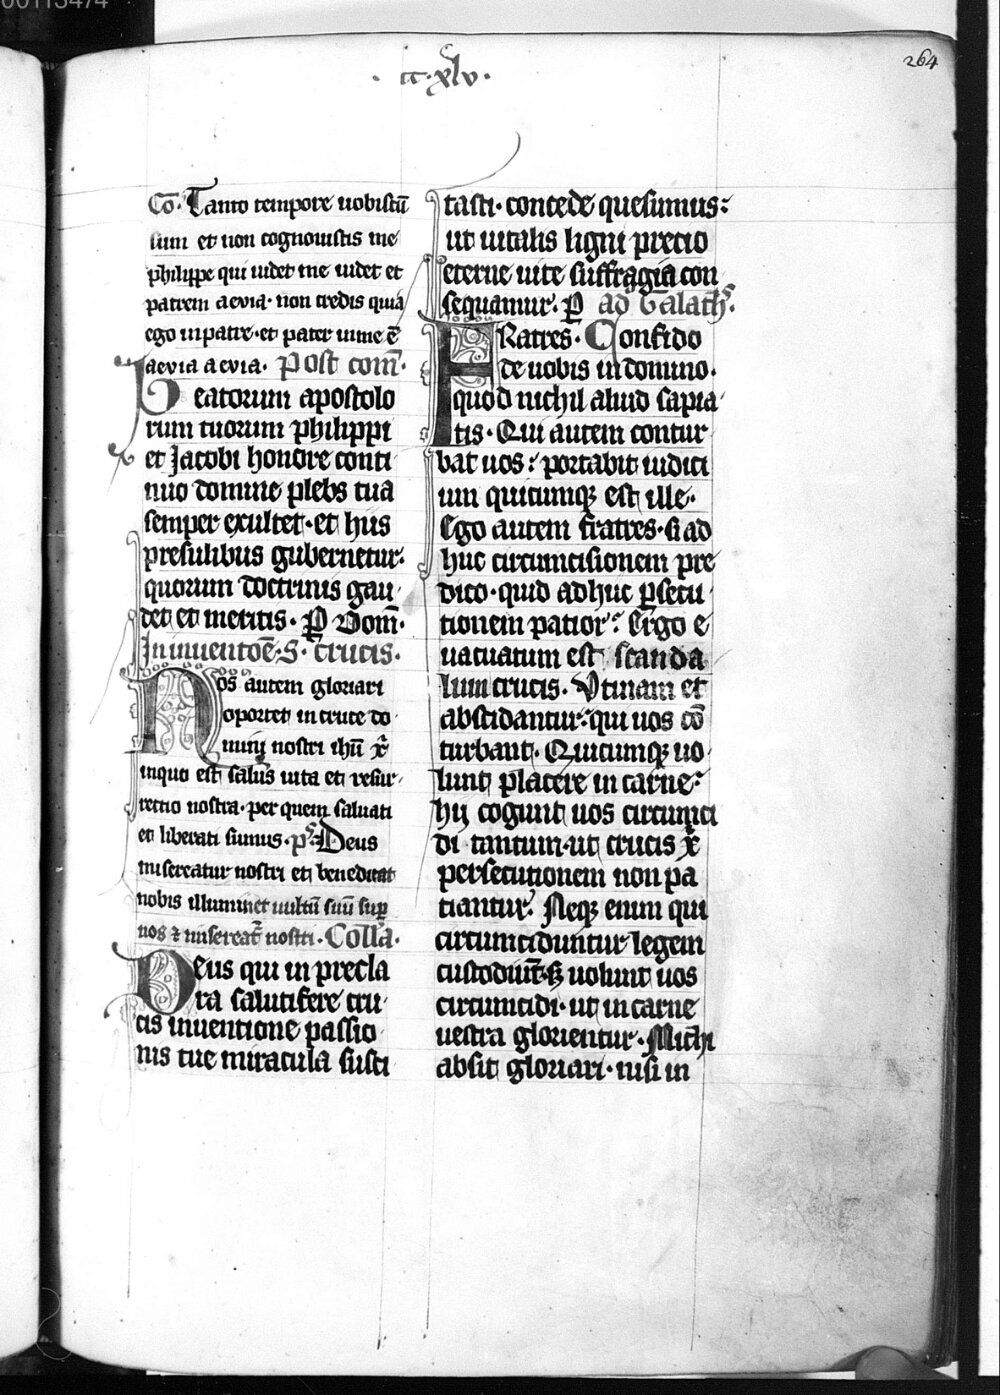 00113474
264
· cc · xlv ·
Co. Tanto tempore uobiscū
sum et non cognouistis me
philippe qui uidet me uidet et
patrem aevia · non credis quia
ego in patre · et pater in me ē
aevia aevia · Post com̄ ·
Beatorum apostolo
rum tuorum philippi
et Jacobi honore conti
nuo domine plebs tua
semper exultet · et hiis
presulibus gubernetur ·
quorum doctrinis gau
det et meritis · P̲ Dom̄ ·
In inuentōe · S · crucis ·
Nos autem gloriari
oportet in cruce do
mini nostri ihū xp̄i
in quo est salus uita et resur
rectio nostra · per quem saluati
et liberati sumus · pˢ · Deus
misereatur nostri et benedicat
nobis illuminet uultū suū sup̄
nos ⁊ misereat᷑ nostri · Coll̄a ·
Deus qui in precla
ra salutifere cru
cis inuentione passio
nis tue miracula susci
tasti · concede quesumus :
ut uitalis ligni precio
eterne uite suffragia con
sequamur · P̲ ad Galathˢ ·
FRatres · Confido
de uobis in domino ·
quod nichil aliud sapia
tis · Qui autem contur
bat uos : portabit iudici
um quicumqꝫ est ille ·
Ego autem fratres · si ad
huc circumcisionem pre
dico · quid adhuc ꝑsecu
tionem patior ? Ergo e
uacuatum est scanda
lum crucis · Vtinam et
abscidantur : qui uos cō
turbant · Quicumqꝫ uo
lunt placere in carne :
hij cogunt uos circumci
di tantum · ut crucis xp̄i
persecutionem non pa
tiantur · Neqꝫ enim qui
circumciduntur legem
custodiūt · sꝫ uolunt uos
circumcidi · ut in carne
uestra glorientur · Michi
absit gloriari · nisi in